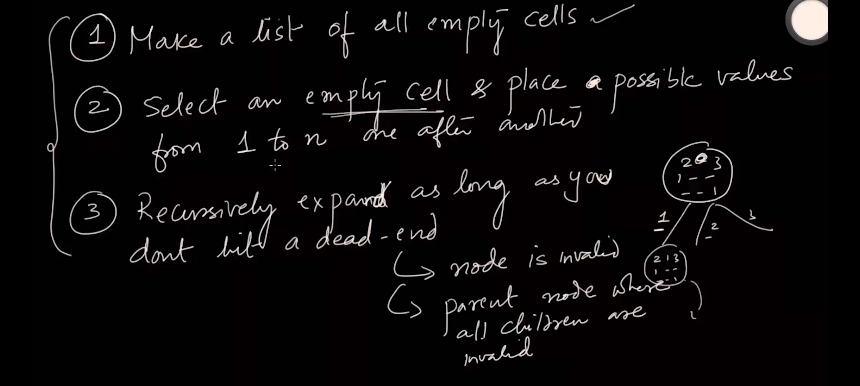 1 Make a list of all empty cells
2 Select an empty cell & place a possible values
from 1 to n one after another
3 Recursively expand as long as you
dont hit a dead-end
node is invalid
parent node where
all children are
invalid
2 3
1 - -
- - 1
1 2 3
2 1 3
1 - -
- - 1